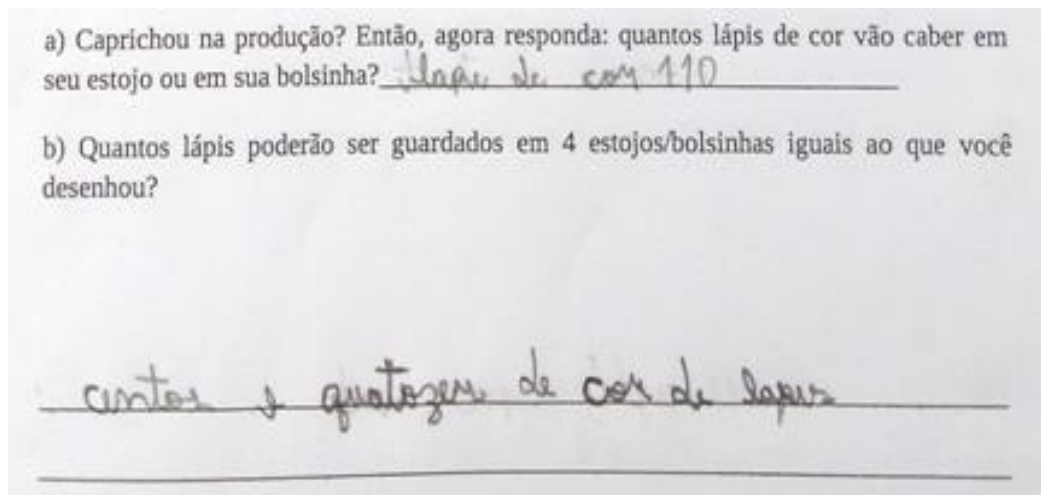 a) Caprichou na produção? Então, agora responda: quantos lápis de cor vão caber em
seu estojo ou em sua bolsinha? lapi de cor 110
b) Quantos lápis poderão ser guardados em 4 estojos/bolsinhas iguais ao que você
desenhou?
centos e quatozen de cor de lapis